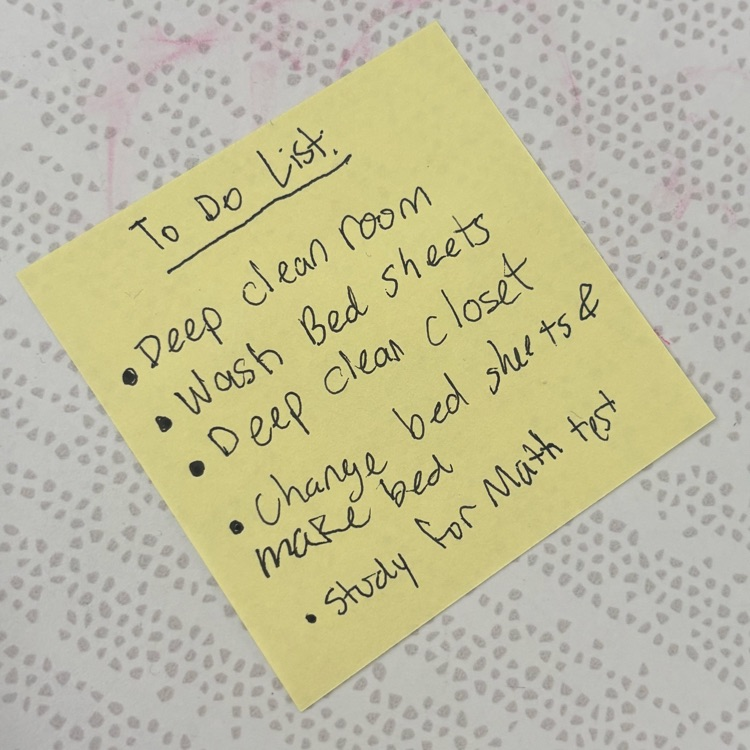 To Do List.
• Deep clean room
• Wash Bed sheets
• Deep clean closet
• Change bed sheets &
make bed
• study for Math test